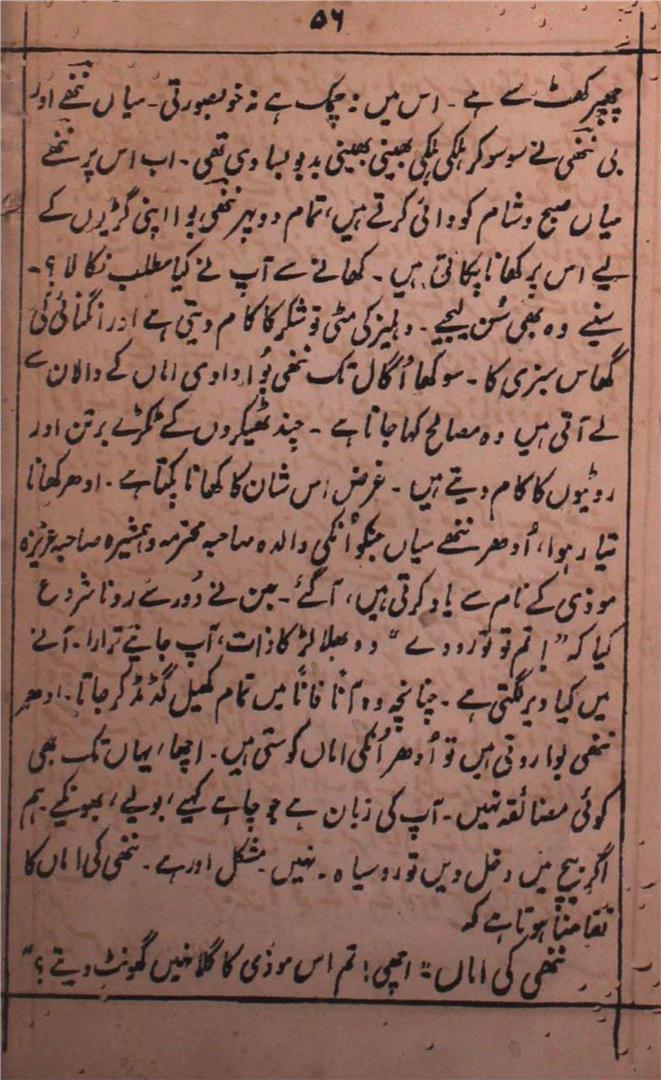 ۵۶
چھپر کھٹ سے ہے۔ اس میں نہ چمک ہے نہ خوبصورتی۔ میاں ننھے اور
بی ننھی نے سو سو کر ہلکی ہلکی بھینی بھینی بدبو بسا دی تھی۔ اب اس پر ننھے
میاں صبح و شام کودائی کرتے ہیں، تمام دوپہر ننھی بوا اپنی گڑیوں کے
لیے اس پر کھانا پکاتی ہیں۔ کھانے سے آپ نے کیا مطلب نکالا؟۔
سنیے وہ بھی سُن لیجیے۔ دہلیز کی مٹی تو شکر کا کام دیتی ہے اور انگنائی کی
گھاس سبزی کا۔ سوکھا اُگال تک ننھی بُوا دادی اماں کے دالان سے
لے آتی ہیں وہ مصالح کہا جاتا ہے۔ چند ٹھیکروں کے ٹکڑے برتن اور
روٹیوں کا کام دیتے ہیں۔ غرض اس شان کا کھانا پکتا ہے۔ ادھر کھانا
تیار ہوا، اُدھر ننھے میاں جنکو اُنکی والدہ صاحبہ محترمہ و ہمشیرہ صاحبہ عزیزہ
موذی کے نام سے یاد کرتی ہیں، آگئے۔ بہن نے دُور سے رونا شروع
کیا کہ "! تم تو توڑ دو دے" وہ بھلا لڑکا ذات، آپ جانیے ترارا۔ آنے
میں کیا دیر لگتی ہے۔ چنانچہ وہ آناً فاناً میں تمام کھیل گڈمڈ کر جاتا۔ ادھر
ننھی بوا روتی ہیں تو اُدھر اُنکی اماں کوستی ہیں۔ اچھا، یہاں تک بھی
کوئی مضائقہ نہیں۔ آپ کی زبان ہے جو چاہے کہیے، بولیے، بھونکیے ہم
اگر بیچ میں دخل دیں تو روسیاہ۔ نہیں مشکل اور ہے۔ ننھی کی اماں کا
تقاضنا ہوتا ہے کہ
ننھی کی اماں:" اچھی! تم اس موذی کا گلا نہیں گھونٹ دیتے؟"